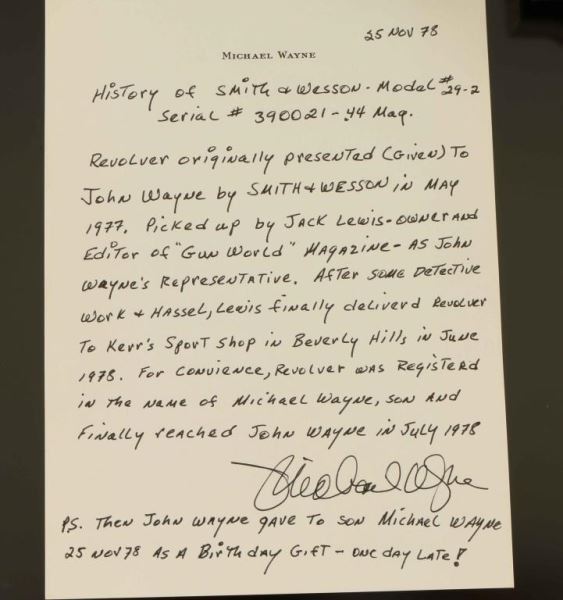 25 NOV 78
MICHAEL WAYNE
History of SMith & Wesson - Model #29-2
Serial # 390021 - 44 Mag.
Revolver originally presented (Given) To
John Wayne by SMITH & WESSON in MAY
1977. Picked up by JACK Lewis - OWNER AND
Editor of "Gun World" MAGAZINE - AS JOHN
WAYNE'S REPRESENTATIVE. AFTER SOME DETECTIVE
WORK & HASSEL, LEWIS finally deliverd REVOLVER
To Kerr's Sport Shop in Beverly Hills in June
1978. FOR CONVIENCE, REVOLVER WAS REGISTERD
in THE NAME of Michael Wayne, SON AND
Finally reached JOHN WAYNE in JULY 1978
Michael Wayne
PS. THEN JOHN WAYNE GAVE TO SON MICHAEL WAYNE
25 NOV 78 AS A Birthday GIFT - ONE DAY LATE!